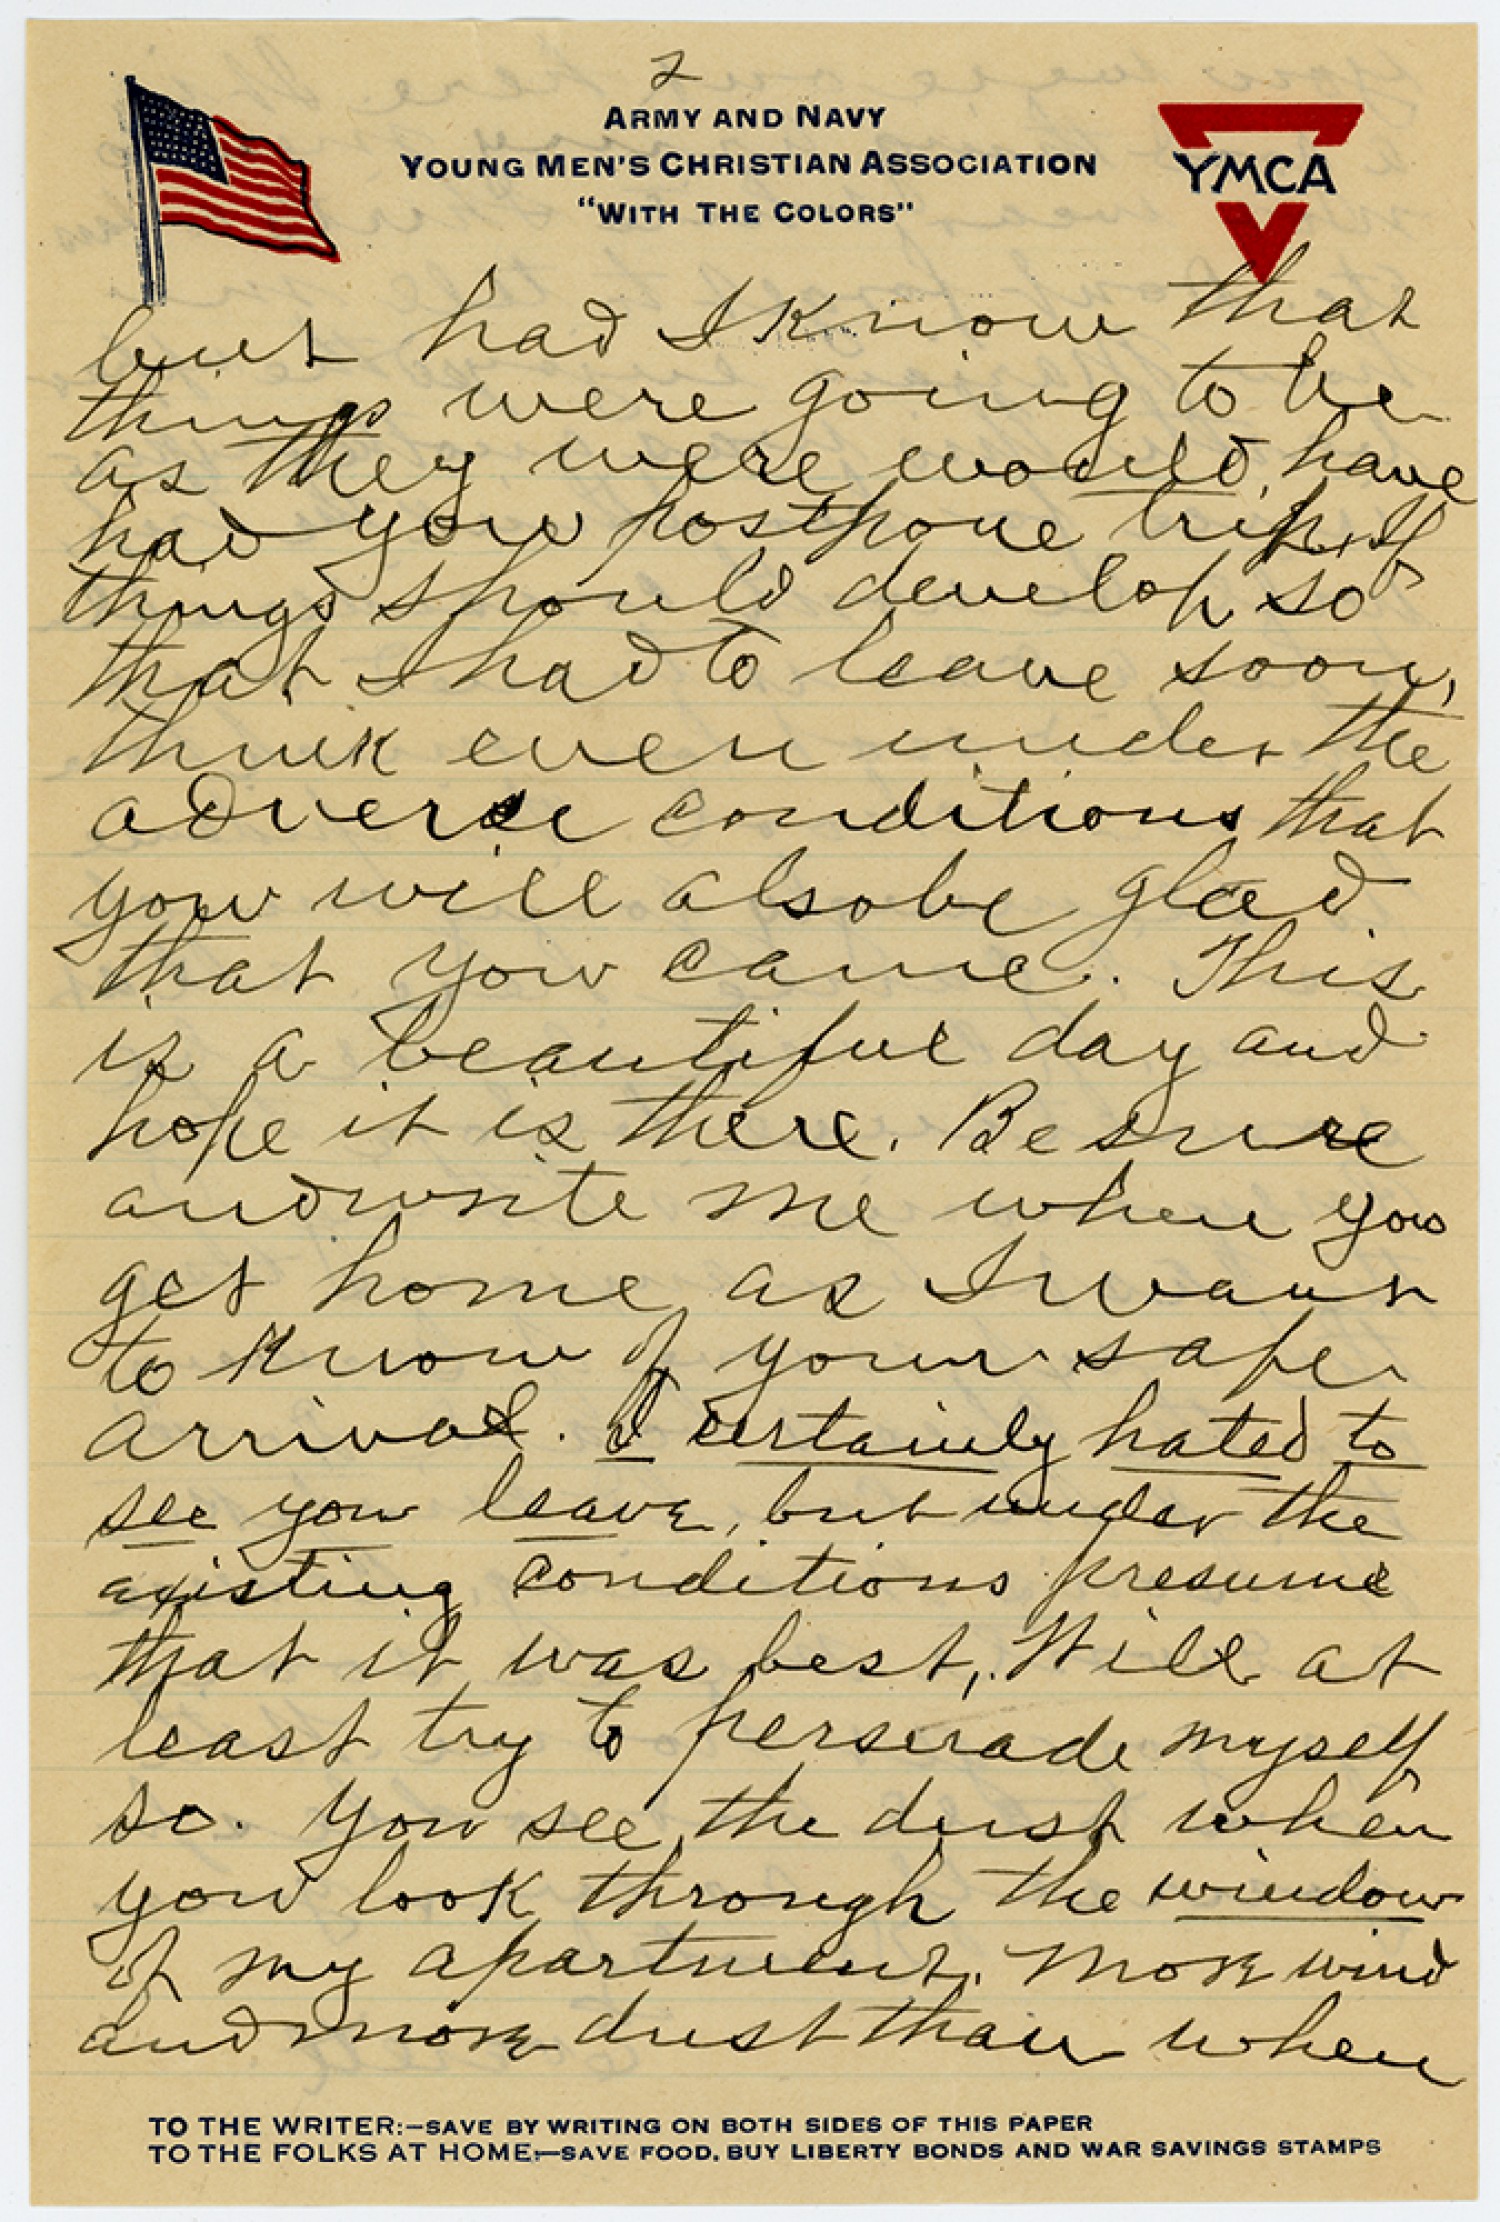 2
ARMY AND NAVY
YOUNG MEN'S CHRISTIAN ASSOCIATION
"WITH THE COLORS"
YMCA
but had I know that
things were going to be
as they were would, have
had you postpone trip. If
things should develop so
that I had to leave soon,
think even under the
adverse conditions that
you will also be glad
that you came. This
is a beautiful day and
hope it is there. Be sure
and write me when you
get home as I want
to know of your safe
arrival. I certainly hated to
see you leave, but under the
existing conditions presume
that it was best. Will at
least try to persuade myself
so. You see the dust when
you look through the window
of my apartment. More wind
and more dust than when
TO THE WRITER:—SAVE BY WRITING ON BOTH SIDES OF THIS PAPER
TO THE FOLKS AT HOME:—SAVE FOOD, BUY LIBERTY BONDS AND WAR SAVINGS STAMPS